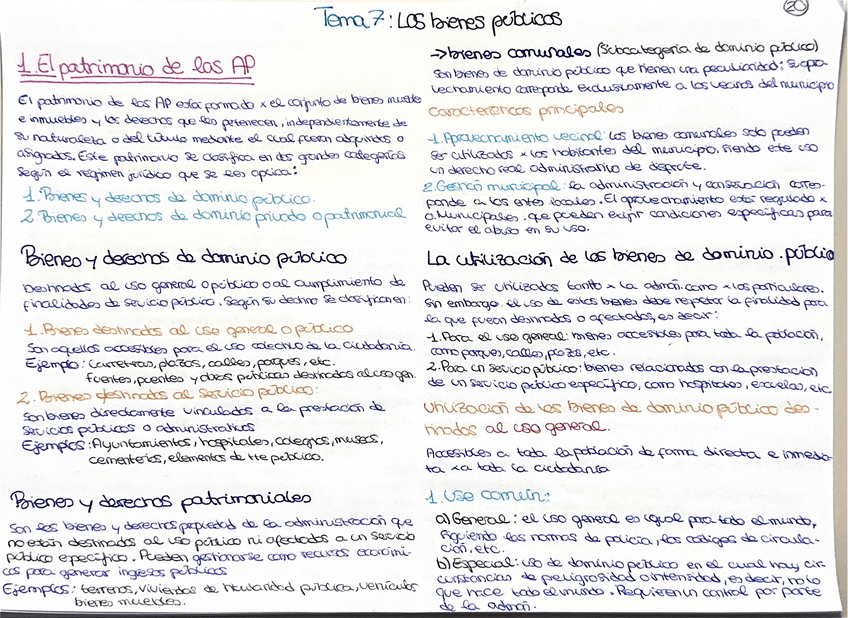 Tema 7: Los bienes públicos
20
1. El patrimonio de las AP
El patrimonio de las AP está formado x el conjunto de bienes muebles
e inmuebles y los derechos que les pertenecen, independientemente de
su naturaleza o del título mediante el cual fueron adquiridos o
asignados. Este patrimonio se clasifica en dos grandes categorías
según el régimen jurídico que se les aplica:
1. Bienes y derechos de dominio público.
2. Bienes y derechos de dominio privado o patrimonial
Bienes y derechos de dominio público
Destinados al uso general o público o al cumplimiento de
finalidades de servicio público. Según su destino se clasifican en:
1. Bienes destinados al uso general o público
Son aquellos accesibles para el uso colectivo de la ciudadanía.
Ejemplo: carreteras, plazas, calles, parques, etc.
Fuentes, puentes y obras públicas destinados al uso gen.
2. Bienes destinados al servicio público:
Son bienes directamente vinculados a la prestación de
servicios públicos o administrativos
Ejemplos: Ayuntamientos, hospitales, colegios, museos,
cementerios, elementos de tte público.
Bienes y derechos patrimoniales
Son los bienes y derechos propiedad de la administración que
no están destinados al uso público ni afectados a un servicio
público específico. Pueden gestionarse como recursos económi-
cos para generar ingresos públicos
Ejemplos: terrenos, viviendas de titularidad pública, vehículos
bienes muebles.
→ bienes comunales (Subcategoría de dominio público)
Son bienes de dominio público que tienen una peculiaridad: su apro
vechamiento corresponde exclusivamente a los vecinos del municipio
Características principales
1. Aprovechamiento vecinal: los bienes comunales solo pueden
ser utilizados x los habitantes del municipio, siendo este uso
un derecho real administrativo de disfrute.
2. Gestión municipal: la administración y conservación corres-
ponde a los entes locales. El aprovechamiento está regulado x
O. Municipales, que pueden exigir condiciones específicas para
evitar el abuso en su uso.
La utilización de los bienes de dominio público
Pueden ser utilizados tanto x la admón. como x los particulares.
Sin embargo, el uso de estos bienes debe respetar la finalidad para
la que fueron destinados o afectados, es decir:
-1. Para el uso general: bienes accesibles para toda la población,
como parques, calles, plazas, etc.
2. Para un servicio público: bienes relacionados con la prestación
de un servicio público específico, como hospitales, escuelas, etc.
Utilización de los bienes de dominio público des-
tinados al uso general.
Accesibles a toda la población de forma directa e inmedia-
ta x a toda la ciudadanía
1. Uso común:
a) General: el uso general es igual para todo el mundo,
siguiendo las normas de policía, los códigos de circula-
ción, etc.
b) Especial: uso de dominio público en el cual hay cir-
cunstancias de peligrosidad o intensidad, es decir, no lo
que hace todo el mundo. Requieren un control por parte
de la admón.